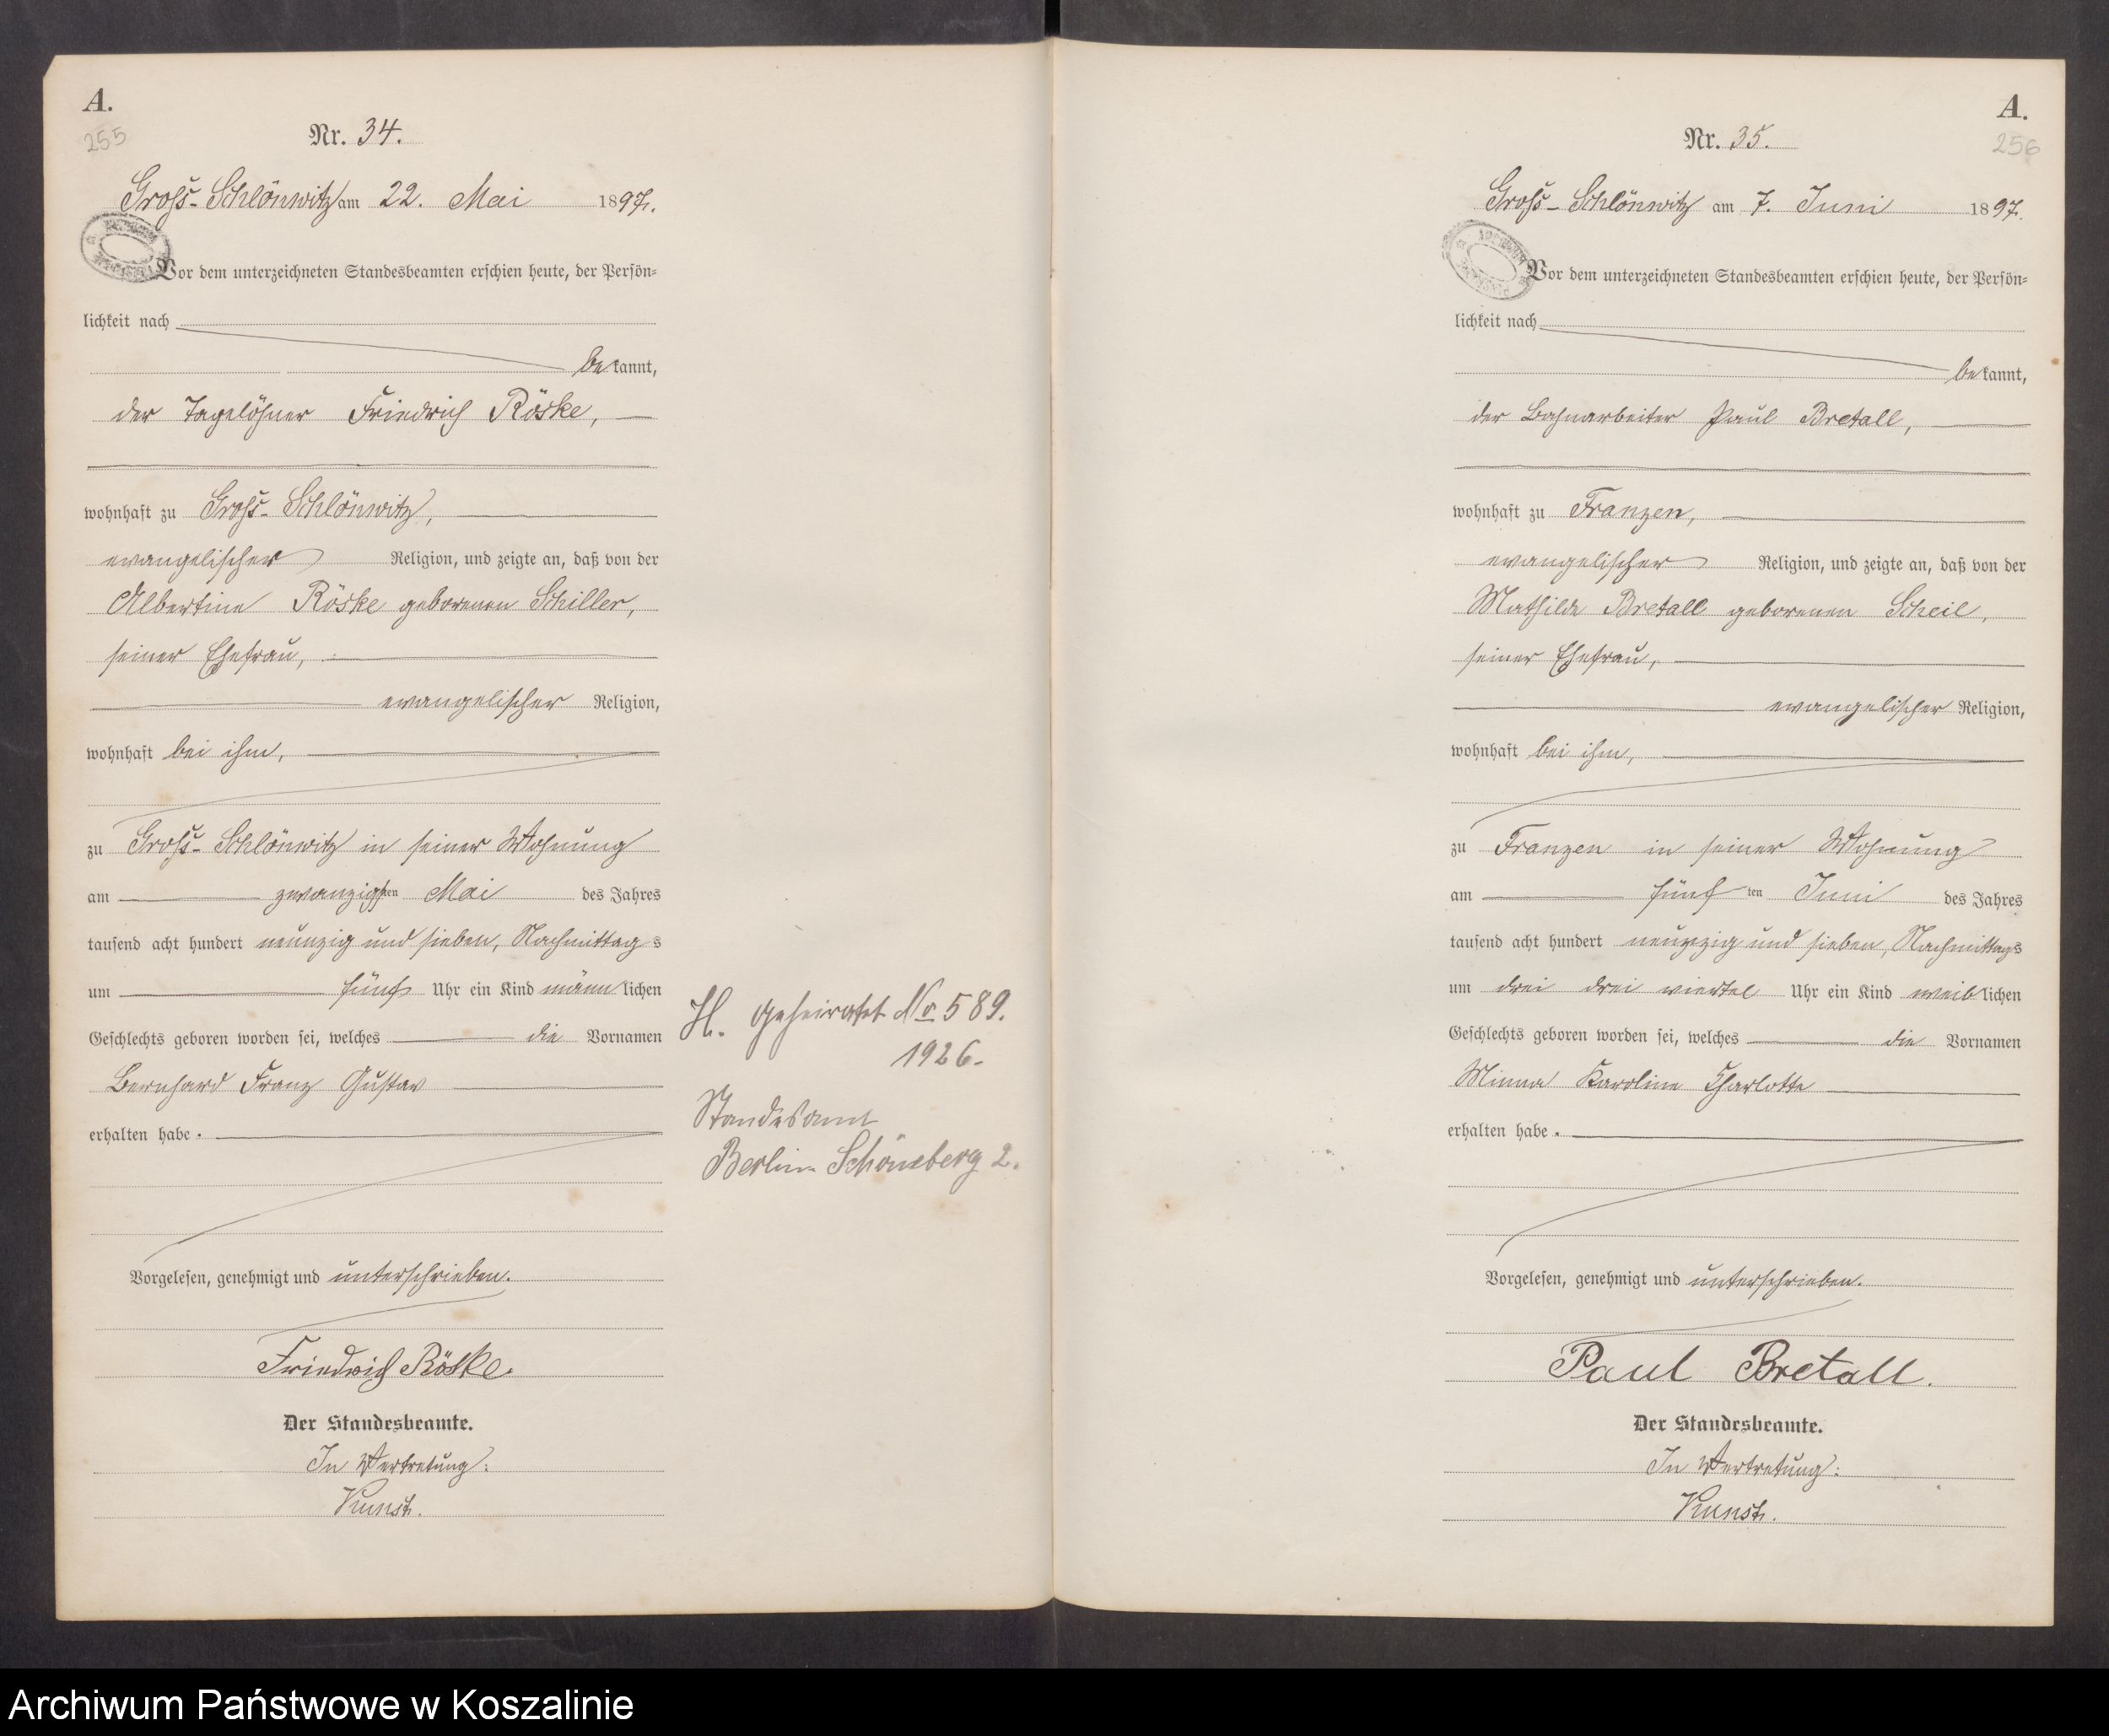 A.
255
Nr. 34.
Groß-Schlönwitz am 22. Mai 1897.
Vor dem unterzeichneten Standesbeamten erschien heute, der Persön=
lichkeit nach
bekannt,
der Tagelöhner Friedrich Röske,
wohnhaft zu Groß-Schlönwitz,
evangelischer Religion, und zeigte an, daß von der
Albertine Röske geborenen Schiller,
seiner Ehefrau,
evangelischer Religion,
wohnhaft bei ihm,
zu Groß-Schlönwitz in seiner Wohnung
am zwanzigsten Mai des Jahres
tausend acht hundert neunzig und sieben, Nachmittags
um fünf Uhr ein Kind männlichen
Geschlechts geboren worden sei, welches die Vornamen
Bernhard Franz Gustav
erhalten habe.
Vorgelesen, genehmigt und unterschrieben.
Friedrich Röske.
Der Standesbeamte.
In Vertretung:
Kunst.
H. geheiratet No 589.
1926.
Standesamt
Berlin-Schöneberg 2.
A.
256
Nr. 35.
Groß-Schlönwitz am 7. Juni 1897.
Vor dem unterzeichneten Standesbeamten erschien heute, der Persön=
lichkeit nach
bekannt,
der Bahnarbeiter Paul Bretall,
wohnhaft zu Franzen,
evangelischer Religion, und zeigte an, daß von der
Mathilde Bretall geborenen Scheil,
seiner Ehefrau,
evangelischer Religion,
wohnhaft bei ihm,
zu Franzen in seiner Wohnung
am fünften Juni des Jahres
tausend acht hundert neunzig und sieben, Nachmittags
um drei drei viertel Uhr ein Kind weiblichen
Geschlechts geboren worden sei, welches die Vornamen
Minna Karoline Charlotte
erhalten habe.
Vorgelesen, genehmigt und unterschrieben.
Paul Bretall.
Der Standesbeamte.
In Vertretung:
Kunst.
Archiwum Państwowe w Koszalinie